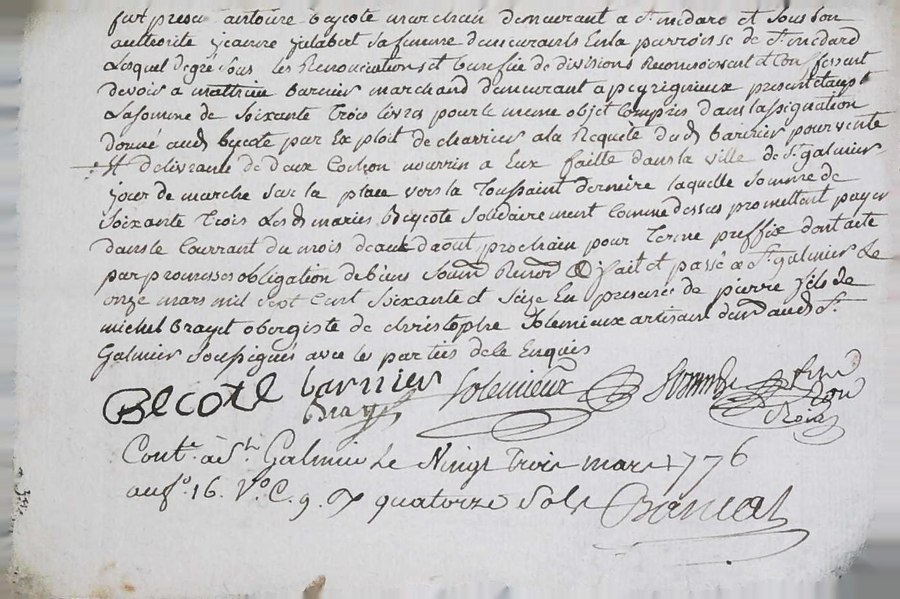 fut present antoine beycote marchan demeurant a St medard et sous son
authorité jeanne jalabert sa femme demeurants en la parroisse de St medard
lesquel degré sous les Renonciations et benefice de divisions Reconnoissent et Confessent
devoir a barnier marchand demeurant a peyrignieux present et aupt
la somme de soixante trois livres pour le meme objet Compris dans lassignation
donné aud beycote par Exploit de charrier a la Requete dud barnier pour vente
et delivrance de deux Cochon nourrin a Eux faitte dans la ville de St galmier
jour de marche sur la place vers la Toussaint derniere laquelle somme de
soixante trois les d maries beycote solidairement Comme dessus promettent payer
dans le Courrant du mois daout prochain pour terme preffix dont acte
par promesses obligation de biens Soumon Renon & fait et passé a St galmier le
onze mars mil sept cent soixante et seize En presence de pierre fils de
michel brayet obergiste de christophe solemieux artisan demt aud St
Galmier soupignés avec le parties de le Enquis
BECOTE barnier Solemieux
Brayet
Contlé a St Galmier Le Vingt trois mars 1776
au fo. 16. Vo. C. 9. R quatorze Sols